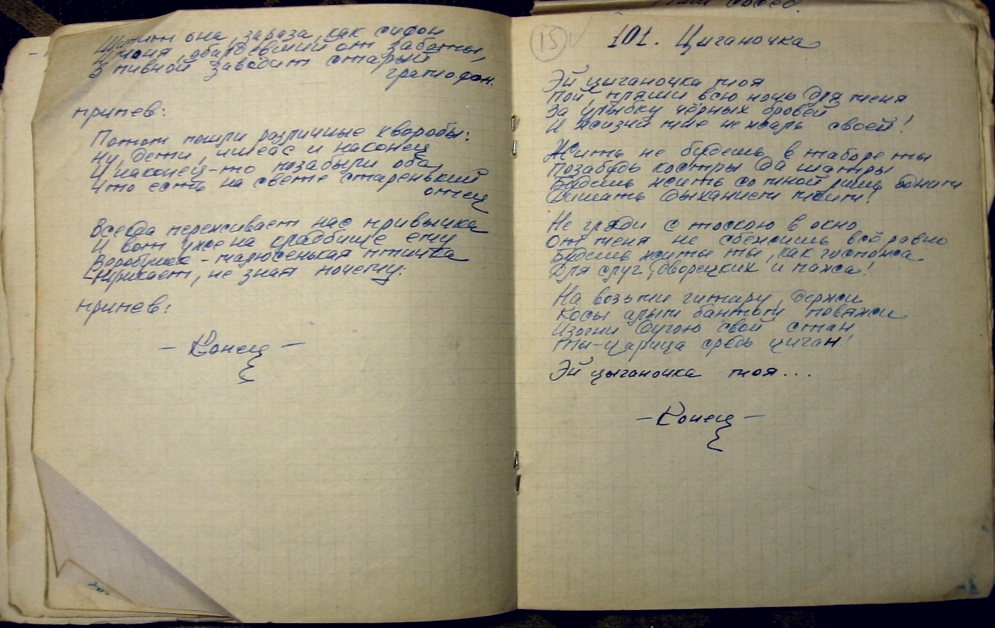 Шипит она, зараза, как сифон
У меня, обалдевший от заботы,
В пивной заводит старый
граммофон.
припев:
Потом пошли различные хворобы:
Ну, дети, ишиас и наконец
И наконец-то позабыли оба,
Что есть на свете старенький
отец
Всегда переживает нас привычка
И вот уже на кладбище ему
Воробушек - малюсенькая птичка
Чирикает, не зная почему.
припев:
- Конец -
15
101. Циганочка
Эй циганочка моя
Пой, пляши всю ночь для меня
За улыбку чёрных бровей
И жизни мне не жаль своей!
Жить не будешь в таборе ты
Позабудь костры да шатры
Будешь жить со мной лишь одним
Дышать дыханием моим!
Не гляди с тоскою в окно
От меня не сбежишь всё равно
Будешь жить ты, как госпожа
Для слуг, дворецких и пажа!
На возьми гитару, держи
Косы алым бантом повяжи
Изогни дугою свой стан
Ты-царица средь циган!
Эй цыганочка моя...
- Конец -